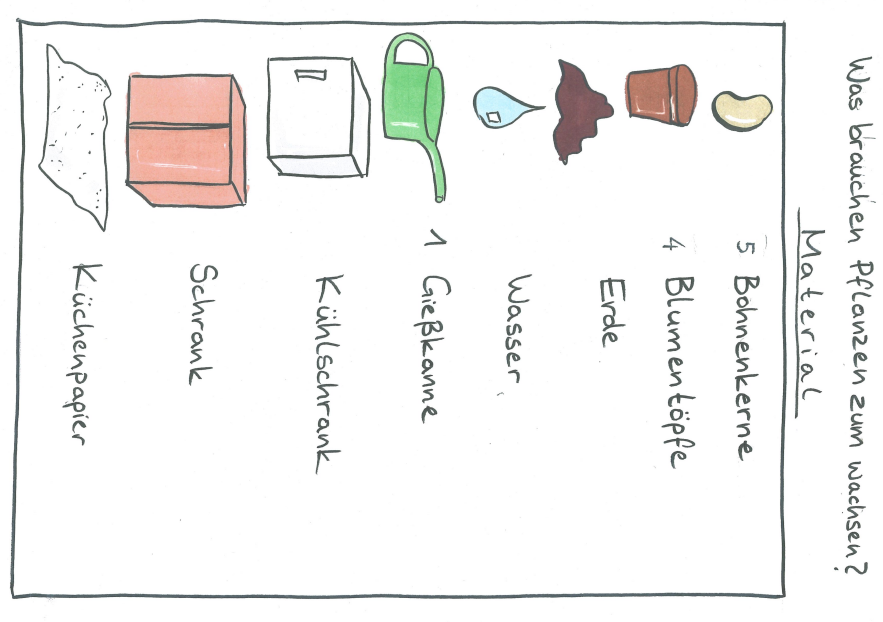 Was brauchen Pflanzen zum wachsen?
Material
5 Bohnenkerne
4 Blumentöpfe
Erde
Wasser
1 Gießkanne
Kühlschrank
Schrank
Küchenpapier